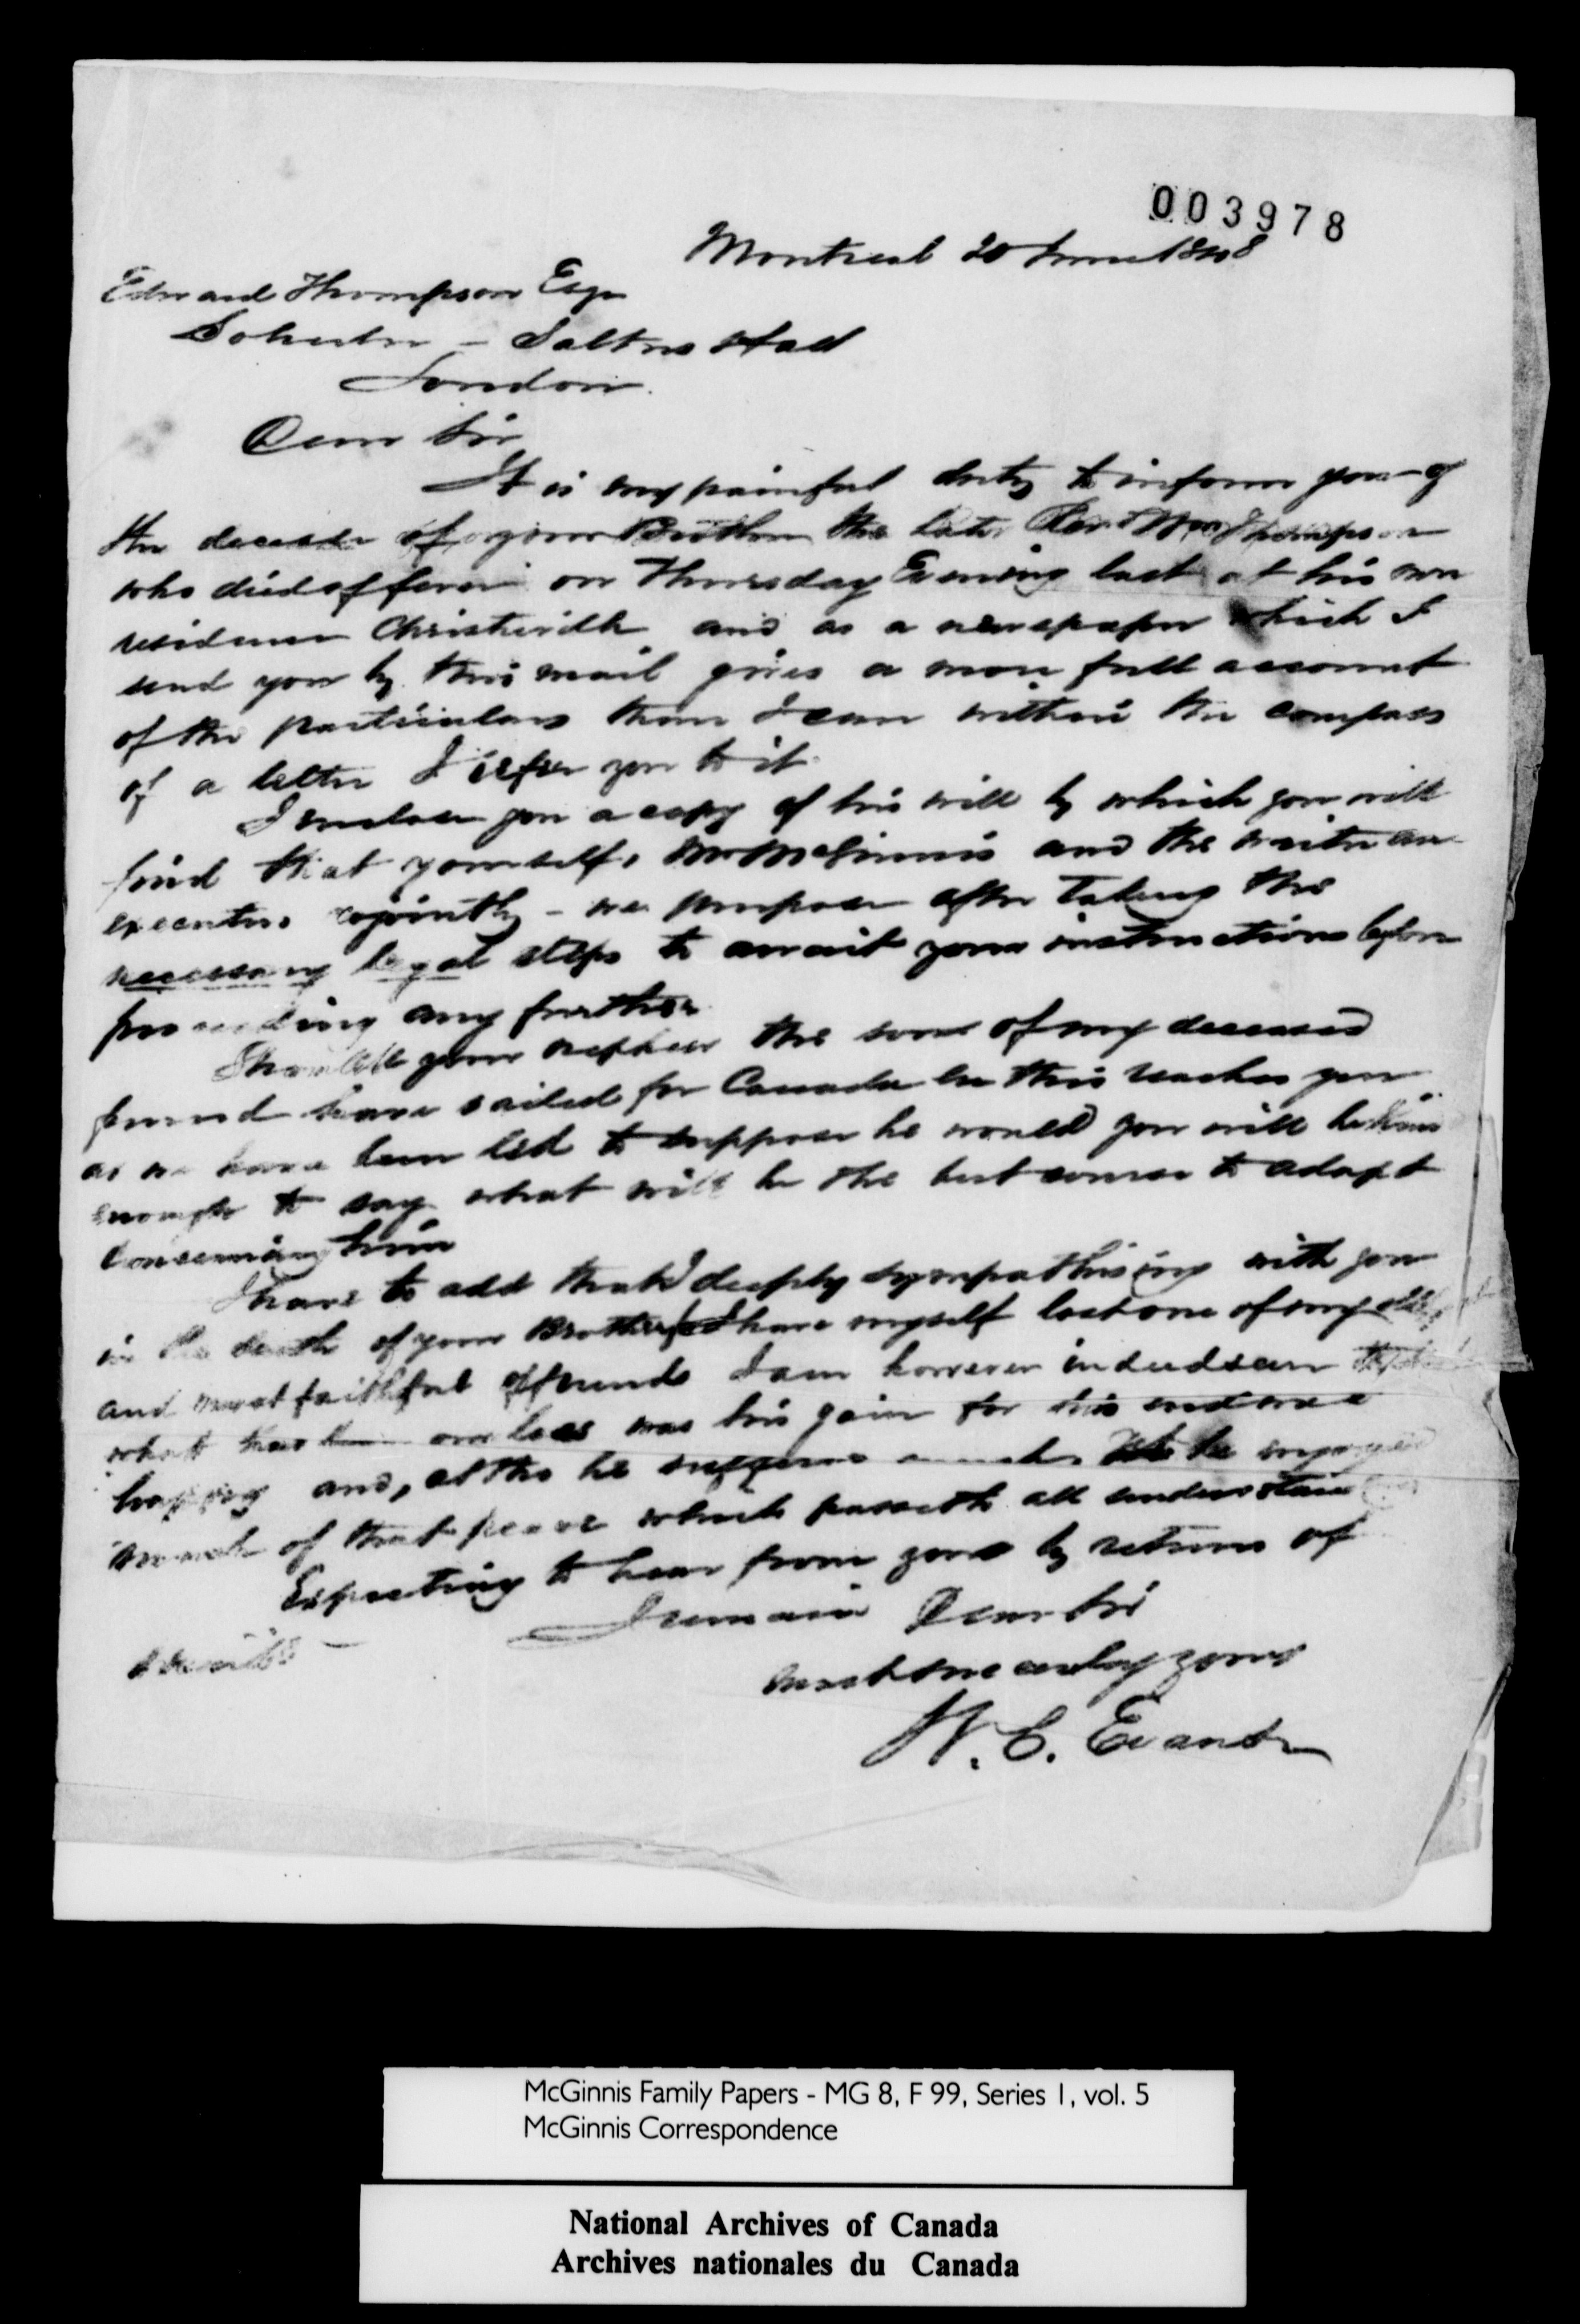 003978
Montreal 20 June 1848
Edward Thompson Esqr
Solicitor - Salters Hall
London.
Dear Sir
It is my painful duty to inform you - of
the decease of your Brother the late Revd Wm Thompson
who died of fever on Thursday Evening last at his own
residence Christieville and as a newspaper which I
send you by this mail gives a more full account
of the particulars than I can within the compass
of a letter I refer you to it.
I enclose you a copy of his will by which you will
find that yourself, Mr McGinnis and the writer are
executors conjointly - we purpose after taking the
necessary legal steps to await your instructions before
proceeding any further
Should your nephew the son of my deceased
friend have sailed for Canada ere this reaches you
as we have been led to suppose he would you will be kind
enough to say what will be the best course to adopt
concerning him
I have to add that deeply sympathising with you
in the death of your Brother I have myself lost one of my oldest
and most faithful friends I am however indeed sure
what has been our loss was his gain for his end was
happy and, altho he suffered much he enjoyed
much of that peace which passeth all understanding
Expecting to hear from you by return of
steamer -
I remain Dear Sir
most sincerely yours
W. C. Evans
McGinnis Family Papers - MG 8, F 99, Series 1, vol. 5
McGinnis Correspondence
National Archives of Canada
Archives nationales du Canada